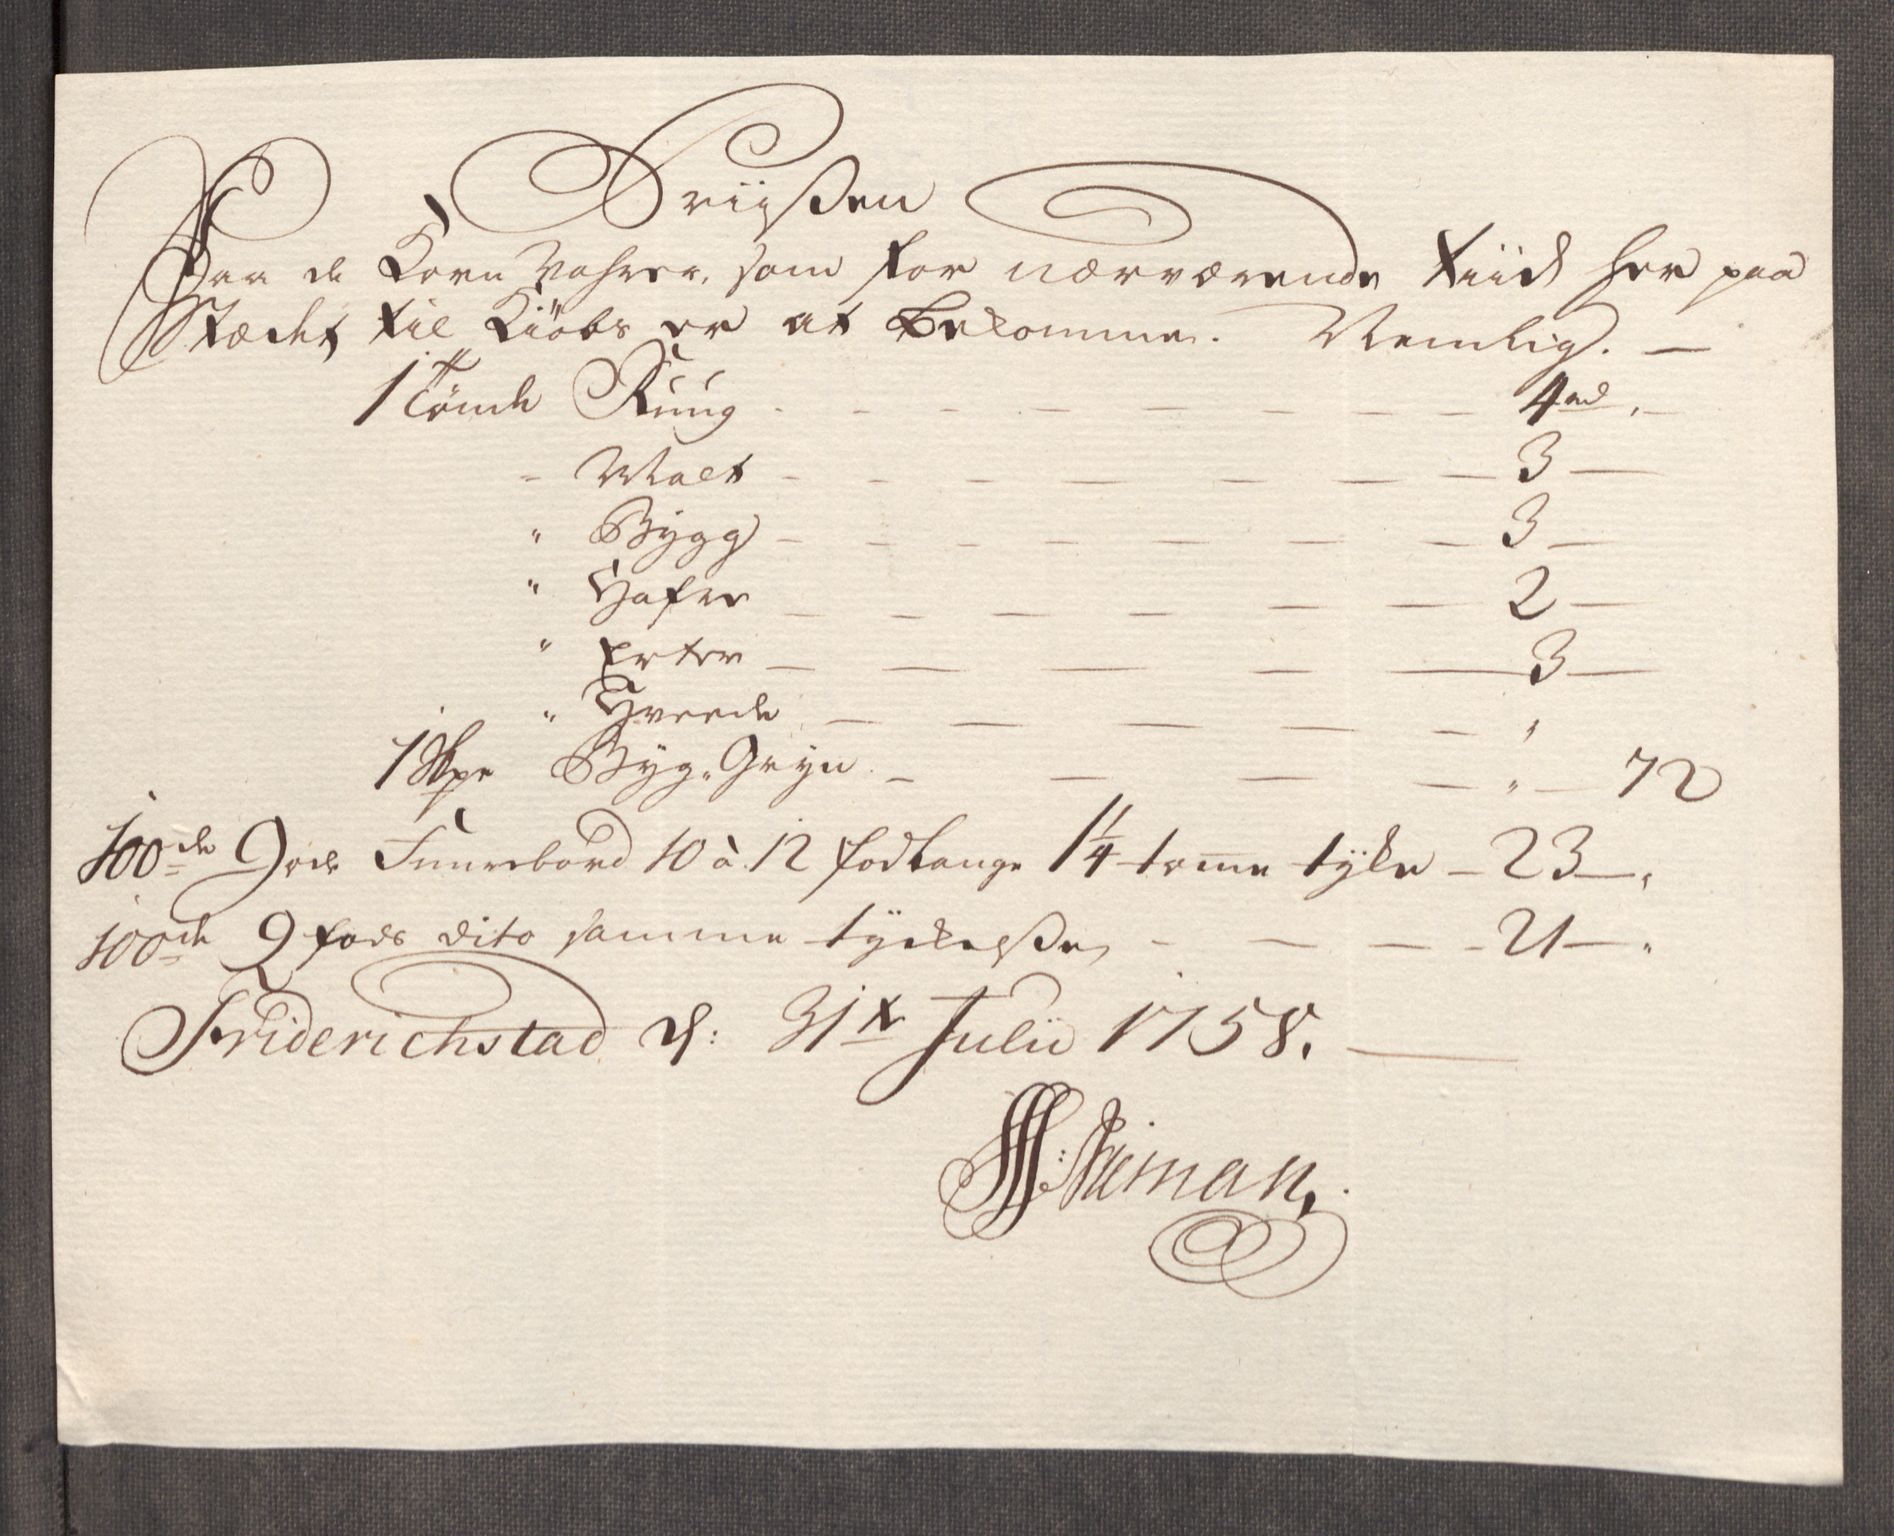 Priißen
Paa de Korn Vahrer, som for nærværende tiid her paa
Stædet til Kiöbs er at bekomme. Nemlig. —
1 Tønde Rúúg - - - - - 4 rd „ —
- Malt - - - - - 3 —
" Bygg - - - - - 3 —
" Hafre - - - - - 2 —
" Erter - - - - - 3 —
" Hvede - - - - - „
1 Skpe Byg-Gryn - - - - „ — 72
100de Gode Furrebord 10 à 12 fod lange 1 1/4 tomme tÿke — 23 — „
100de 9 fods dito samme tÿckelße, - - - - 21 — „
Friderichstad d: 31te Julii 1758. —